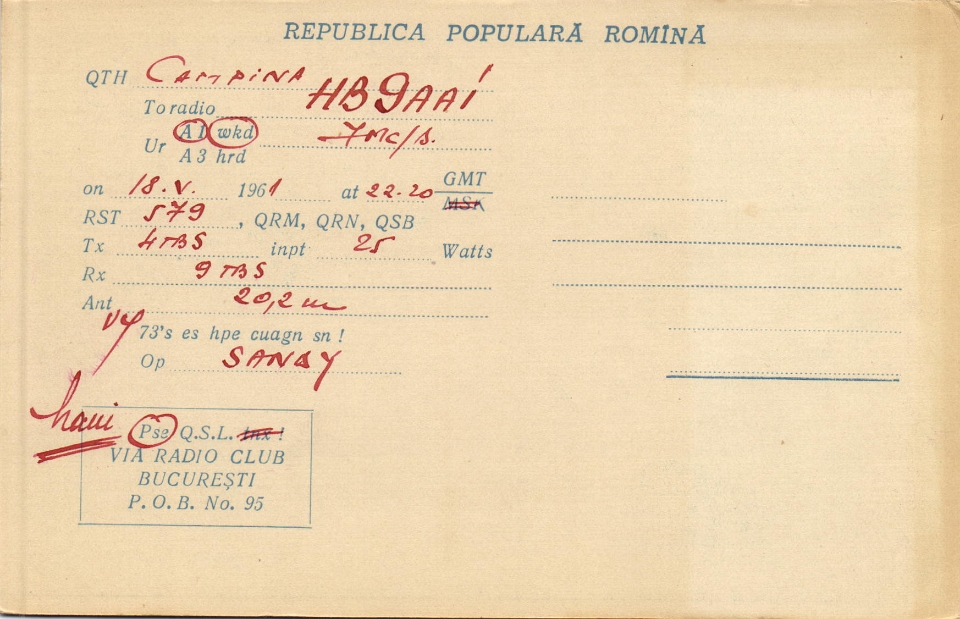 REPUBLICA POPULARĂ ROMÎNĂ
QTH CAMPINA
To radio HB9AAI
Ur A1 wkd 7Mc/s.
A3 hrd
on 18.V. 1961 at 22.20 GMT
MSK
RST 579, QRM, QRN, QSB
Tx 4TBS inpt 25 Watts
Rx 9 TBS
Ant 20,2 m
vy 73's es hpe cuagn sn !
Op SANDY
Pse Q.S.L. tnx !
VIA RADIO CLUB
BUCUREȘTI
P.O.B. No. 95